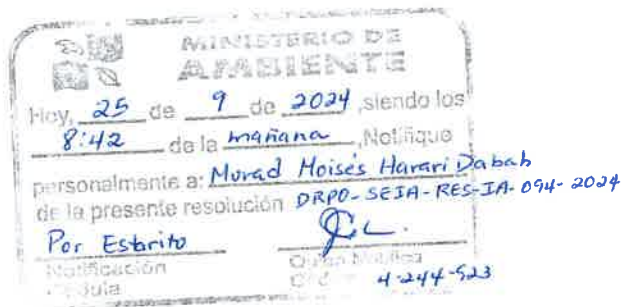 MINISTERIO DE
AMBIENTE
Hoy, 25 de 9 de 2024, siendo los
8:42 de la mañana, Notifique
personalmente a: Murad Moisés Harari Dabah
de la presente resolución DRPO-SEIA-RES-IA-094-2024
Por Esbrito
Notificación
Cédula
4-244-523